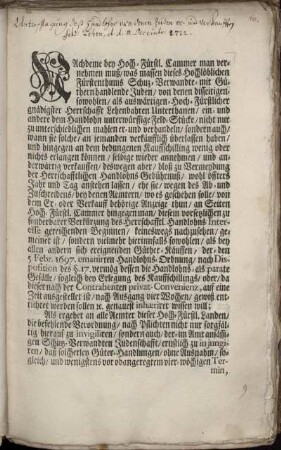 Nachdeme bey Hoch-Fürstl. Cammer man ver-
nehmen muß/ was massen dieses Hochlöblichen
Fürstenthums Schutz-Verwandte mit Gü-
thern handlende Juden/ von denen dißseitigen
sowohlen/ als auswärtigen-Hoch-Fürstlicher
gnädigster Herrschafft Lehenbahren Unterthanen/ ein- und
andere dem Handlohn unterwürffige Feld-Stücke/ nicht nur
zu unterschiedlichen mahlen er- und verhandeln/ sondern auch/
wann sie solche/ an jemanden verkäufflich überlassen haben/
und hingegen an dem bedungenen Kauffschilling wenig oder
nichts erlangen können/ selbige wieder annehmen/ und an-
derwärtig verkauffen/ deswegen aber/ bloß zu Vermeydung
der Herrschafftlichen Handlohns Gebührnuß/ wohl öffters
Jahr und Tag anstehen lassen/ ehe sie/ wegen des Ab- und
Zuschreibens/ bey denen Aemtern/ wo es geschehen solle/ von
dem Er- oder Verkauff behörige Anzeige thun/ an Seiten
Hoch-Fürstl. Cammer hingegen man/ diesem vorsetzlichen zu
sonderbarer Verkürtzung des Herrschafftl. Handlohns Inter-
esse gereichenden Beginnen/ keineswegs nachzusehen/ ge-
meinet ist/ sondern vielmehr hierinnfalls sowohlen/ als bey
allen andern sich ereignenden Güther-Käuffen/ der/ den
5 Febr. 1697. emanirten Handlohns-Ordnung/ nach Dis-
position des §.17. vermög dessen die Handlohns/ als parate
Gefälle/ sogleich bey Erlegung des Kauffschillings/ oder/ da
dieser nach der Contrahenten privat-Convenienz, auf eine
Zeit ausgestellet ist/ nach Ausgang vier Wochen/ gewiß ent-
richtet werden sollen ꝛc. genauest inhæriret wissen will;
Als ergehet an alle Aemter dieser Hoch-Fürstl. Landen/
die befehlende Verordnung/ nach Pflichten nicht nur sorgfäl-
tig hierauf zu invigiliren/ sondern auch/ der im Amt ansäßi-
gen Schutz-Verwandten Judenschafft/ ernstlich zu injungi-
ren/ daß solche ihre Güter-Handlungen/ ohne Ausnahm/ so-
gleich/ und wenigstens vor obangeregtem vier-wöchigen Ter-
min,